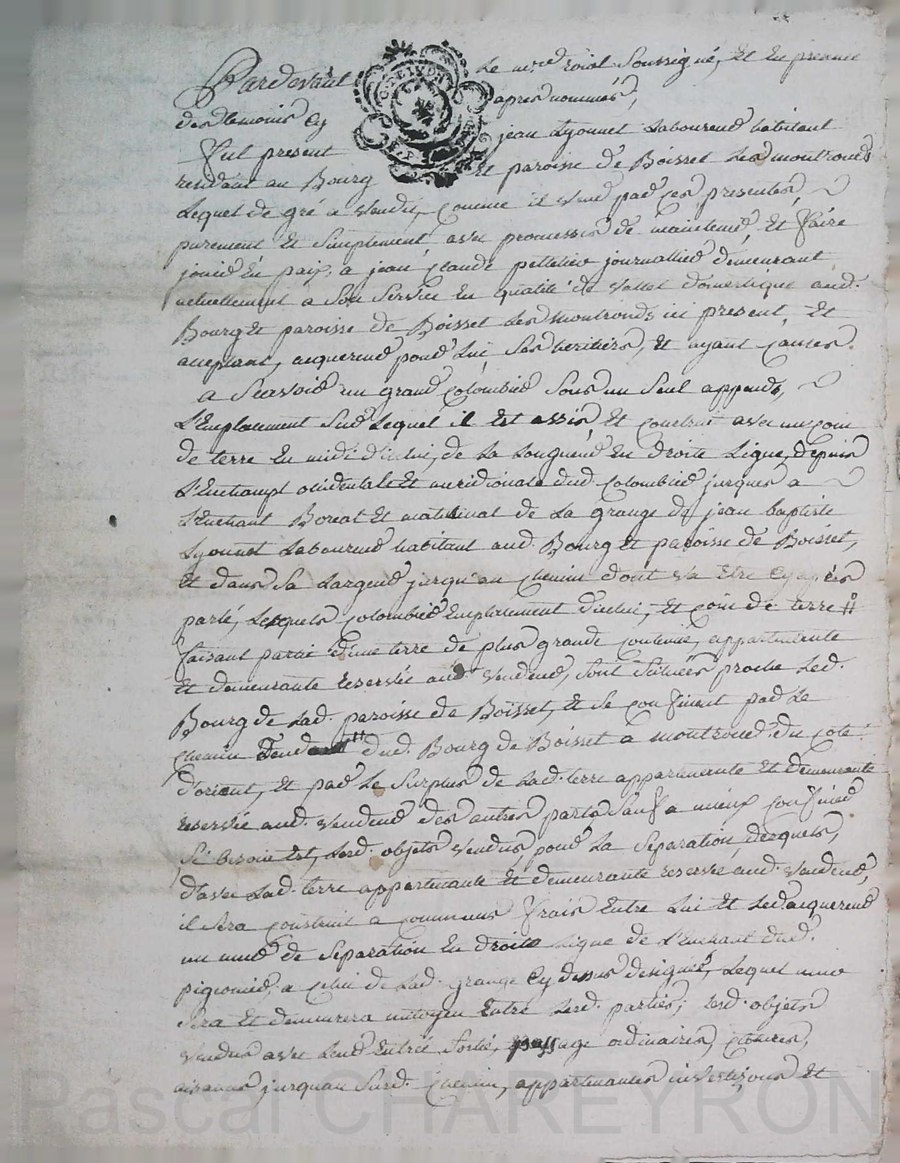 Pardevant Le nre roial Soussigné, Et En presence
des temoins Cy apres nommés,
Fut present jean Lyonnet Laboureur habitant
resident au Bourg Et paroisse de Boisset Les montronds
Lequel de gré a vendu, Comme il vend par Ces presentes,
purement Et Simplement, avec promesse de maintenir, Et faire
jouir En paix, a jean Claude pelletier journallier demeurant
actuellement a Son Service En qualité de valet domestique aud.
Bourg Et paroisse de Boisset Les montronds ici present, Et
acceptant, acquereur pour Lui Ses heritiers, Et ayant Causes.
a Scavoir un grand Colombier Sous un Seul appends,
L'Emplacement Sur Lequel il Est assis, Et Construit avec un coin
de terre En midi d'icelui, de La Longueur En droite Ligne, depuis
L'Enchant occidentale Et meridionale dud. Colombier jusques a
L'Enchant Boreal Et matinal de La grange de jean baptiste
Lyonnet Laboureur habitant aud. Bourg Et paroisse de Boisset,
Et dans Sa Largeur jusqu'au Chemin dont va Etre Cy après
parlé, Lesquels Colombier Emplacement d'icelui, Et Coin de terre
faisant partie d'une terre de plus grande Contenue, appartenante
Et demeurante reservée aud. vendeur, Sont Situées proche Led.
Bourg de Lad. paroisse de Boisset, Et Se Confinent par Le
Chemin dud. Bourg de Boisset a montrond du coté
d'orient, Et par Le Surplus de Lad. terre appartenante Et demeurante
reservée aud. vendeur des autres parts Sauf a mieux Confiner
Si besoin Est, Lesd. objets vendus pour La Separation desquels,
d'avec Lad. terre appartenante Et demeurante reservée aud. vendeur,
il Sera Construit a Communs frais Entre Lui Et Led. acquereur
un mur de Separation En droite Ligne de L'Enchant dud.
pigeonier, a Celui de Lad. grange Cy dessus designée, Lequel mur
Sera Et demeurera mitoyen Entre Lesd. parties; Lesd. objets
vendus avec Leur Entrée Sortie, passage ordinaires,
aisances jusquau Susd. Chemin, appartenances Et
Pascal CHAREYRON